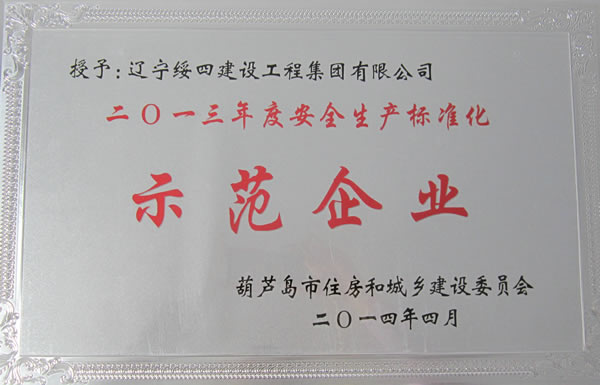 授予：辽宁绥四建设工程集团有限公司
二〇一三年度安全生产标准化
示范企业
葫芦岛市住房和城乡建设委员会
二〇一四年四月